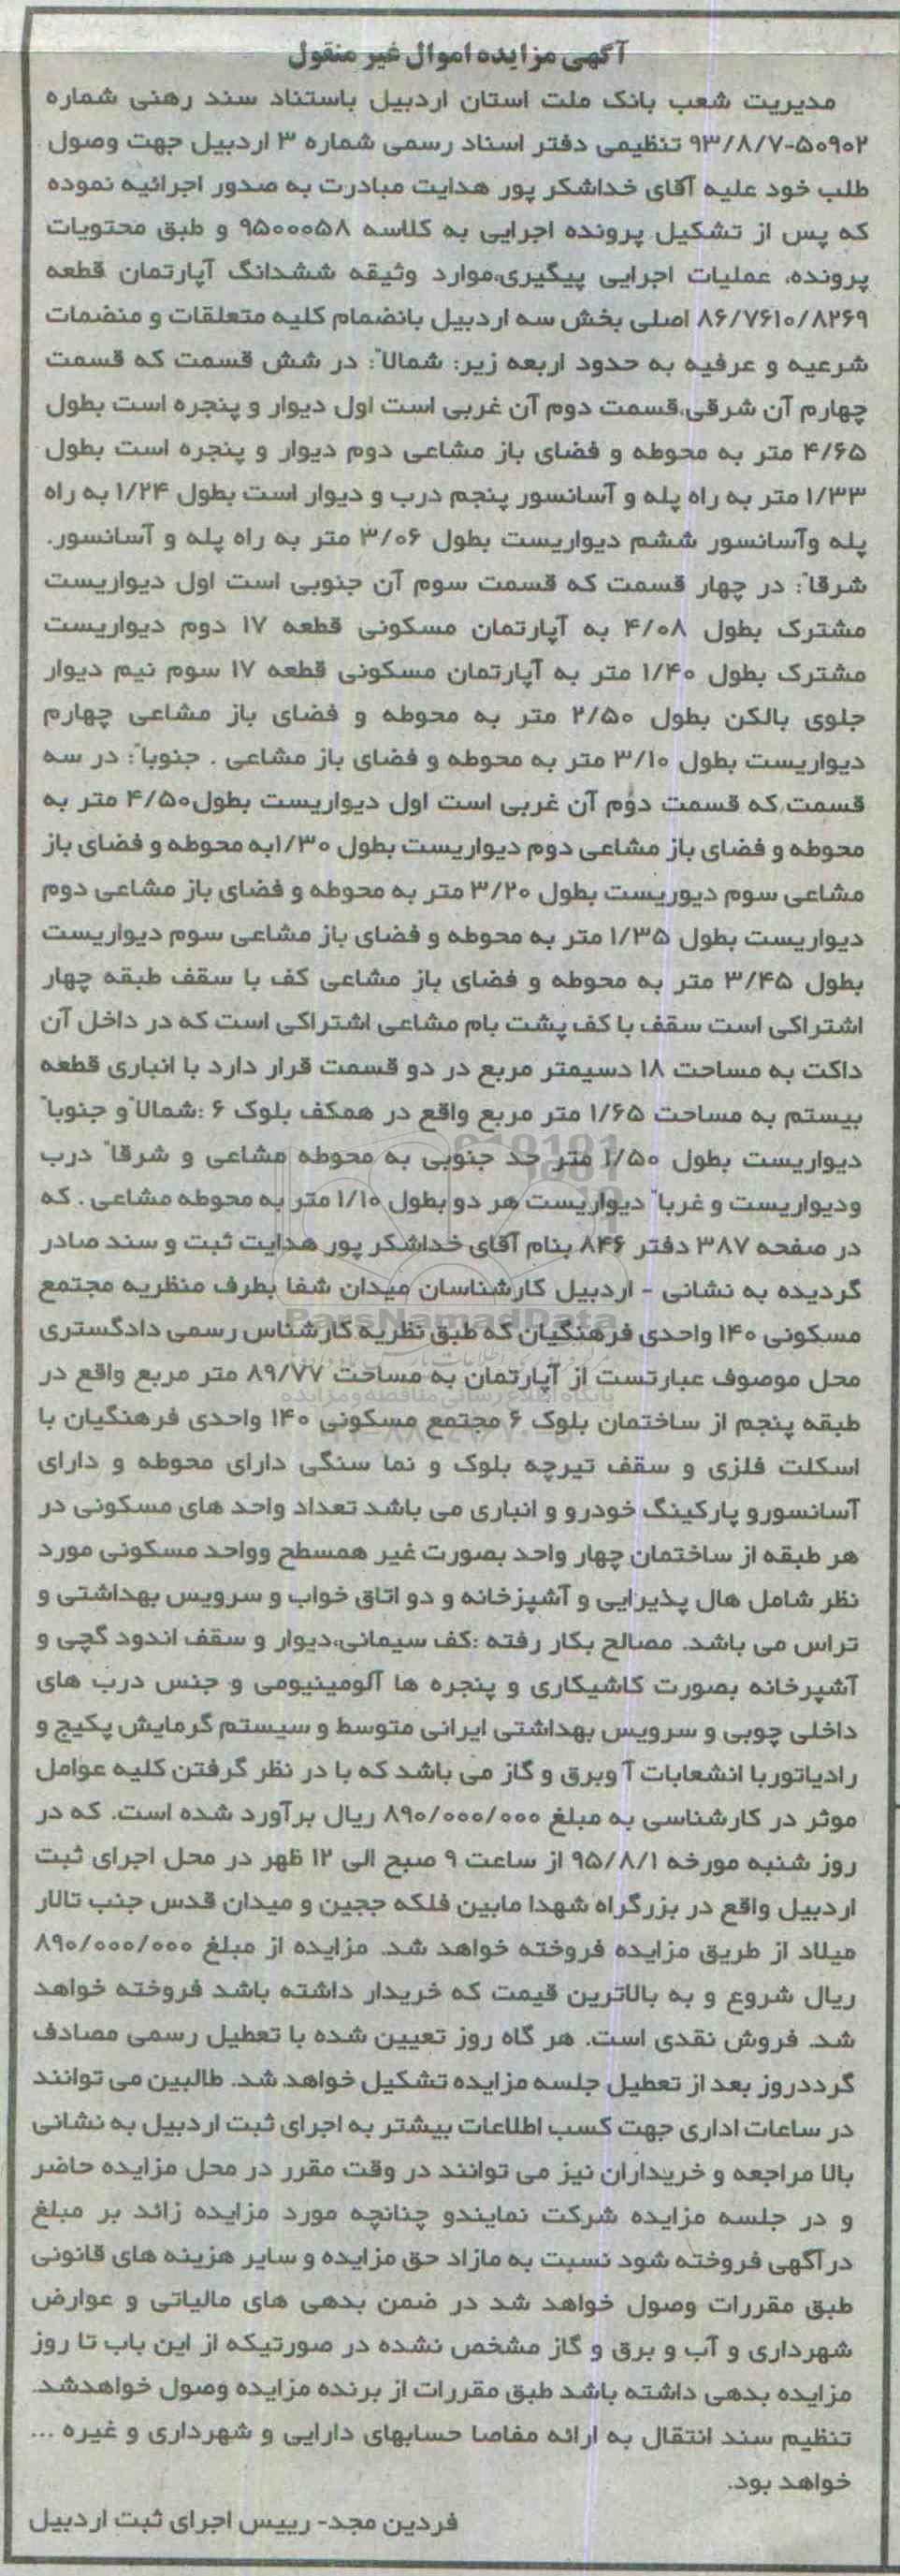 آگهی مزایده اموال غیر منقول
مدیریت شعب بانک ملت استان اردبیل باستناد سند رهنی شماره
۵۰۹۰۲-۹۳/۸/۷ تنظیمی دفتر اسناد رسمی شماره ۳ اردبیل جهت وصول
طلب خود علیه آقای خداشکر پور هدایت مبادرت به صدور اجرائیه نموده
که پس از تشکیل پرونده اجرایی به کلاسه ۹۵۰۰۰۵۸ و طبق محتویات
پرونده، عملیات اجرایی پیگیری،موارد وثیقه ششدانگ آپارتمان قطعه
۸۶/۷۶۱۰/۸۲۶۹ اصلی بخش سه اردبیل بانضمام کلیه متعلقات و منضمات
شرعیه و عرفیه به حدود اربعه زیر: شمالاً: در شش قسمت که قسمت
چهارم آن شرقی،قسمت دوم آن غربی است اول دیوار و پنجره است بطول
۴/۶۵ متر به محوطه و فضای باز مشاعی دوم دیوار و پنجره است بطول
۱/۳۳ متر به راه پله و آسانسور پنجم درب و دیوار است بطول ۱/۲۴ به راه
پله وآسانسور ششم دیواریست بطول ۳/۰۶ متر به راه پله و آسانسور.
شرقاً: در چهار قسمت که قسمت سوم آن جنوبی است اول دیواریست
مشترک بطول ۴/۰۸ به آپارتمان مسکونی قطعه ۱۷ دوم دیواریست
مشترک بطول ۱/۴۰ متر به آپارتمان مسکونی قطعه ۱۷ سوم نیم دیوار
جلوی بالکن بطول ۲/۵۰ متر به محوطه و فضای باز مشاعی چهارم
دیواریست بطول ۳/۱۰ متر به محوطه و فضای باز مشاعی . جنوباً: در سه
قسمت که قسمت دوم آن غربی است اول دیواریست بطول۴/۵۰ متر به
محوطه و فضای باز مشاعی دوم دیواریست بطول ۱/۳۰به محوطه و فضای باز
مشاعی سوم دیوریست بطول ۳/۲۰ متر به محوطه و فضای باز مشاعی دوم
دیواریست بطول ۱/۳۵ متر به محوطه و فضای باز مشاعی سوم دیواریست
بطول ۳/۴۵ متر به محوطه و فضای باز مشاعی کف با سقف طبقه چهار
اشتراکی است سقف با کف پشت بام مشاعی اشتراکی است که در داخل آن
داکت به مساحت ۱۸ دسیمتر مربع در دو قسمت قرار دارد با انباری قطعه
بیستم به مساحت ۱/۶۵ متر مربع واقع در همکف بلوک ۶ :شمالاً و جنوباً
دیواریست بطول ۱/۵۰ متر حد جنوبی به محوطه مشاعی و شرقاً درب
ودیواریست و غرباً دیواریست هر دو بطول ۱/۱۰ متر به محوطه مشاعی . که
در صفحه ۳۸۷ دفتر ۸۴۶ بنام آقای خداشکر پور هدایت ثبت و سند صادر
گردیده به نشانی - اردبیل کارشناسان میدان شفا بطرف منظریه مجتمع
ParsNamadData
مسکونی ۱۴۰ واحدی فرهنگیان که طبق نظریه کارشناس رسمی دادگستری
محل موصوف عبارتست از آپارتمان به مساحت ۸۹/۷۷ متر مربع واقع در
پایگاه اطلاع رسانی مناقصه و مزایده
طبقه پنجم از ساختمان بلوک ۶ مجتمع مسکونی ۱۴۰ واحدی فرهنگیان با
اسکلت فلزی و سقف تیرچه بلوک و نما سنگی دارای محوطه و دارای
آسانسورو پارکینگ خودرو و انباری می باشد تعداد واحد های مسکونی در
هر طبقه از ساختمان چهار واحد بصورت غیر همسطح وواحد مسکونی مورد
نظر شامل هال پذیرایی و آشپزخانه و دو اتاق خواب و سرویس بهداشتی و
تراس می باشد. مصالح بکار رفته :کف سیمانی،دیوار و سقف اندود گچی و
آشپرخانه بصورت کاشیکاری و پنجره ها آلومینیومی و جنس درب های
داخلی چوبی و سرویس بهداشتی ایرانی متوسط و سیستم گرمایش پکیج و
رادیاتوربا انشعابات آ وبرق و گاز می باشد که با در نظر گرفتن کلیه عوامل
موثر در کارشناسی به مبلغ ۸۹۰/۰۰۰/۰۰۰ ریال برآورد شده است. که در
روز شنبه مورخه ۹۵/۸/۱ از ساعت ۹ صبح الی ۱۲ ظهر در محل اجرای ثبت
اردبیل واقع در بزرگراه شهدا مابین فلکه ججین و میدان قدس جنب تالار
میلاد از طریق مزایده فروخته خواهد شد. مزایده از مبلغ ۸۹۰/۰۰۰/۰۰۰
ریال شروع و به بالاترین قیمت که خریدار داشته باشد فروخته خواهد
شد. فروش نقدی است. هر گاه روز تعیین شده با تعطیل رسمی مصادف
گرددروز بعد از تعطیل جلسه مزایده تشکیل خواهد شد. طالبین می توانند
در ساعات اداری جهت کسب اطلاعات بیشتر به اجرای ثبت اردبیل به نشانی
بالا مراجعه و خریداران نیز می توانند در وقت مقرر در محل مزایده حاضر
و در جلسه مزایده شرکت نمایندو چنانچه مورد مزایده زائد بر مبلغ
درآگهی فروخته شود نسبت به مازاد حق مزایده و سایر هزینه های قانونی
طبق مقررات وصول خواهد شد در ضمن بدهی های مالیاتی و عوارض
شهرداری و آب و برق و گاز مشخص نشده در صورتیکه از این باب تا روز
مزایده بدهی داشته باشد طبق مقررات از برنده مزایده وصول خواهدشد.
تنظیم سند انتقال به ارائه مفاصا حسابهای دارایی و شهرداری و غیره ...
خواهد بود.
فردین مجد- رییس اجرای ثبت اردبیل